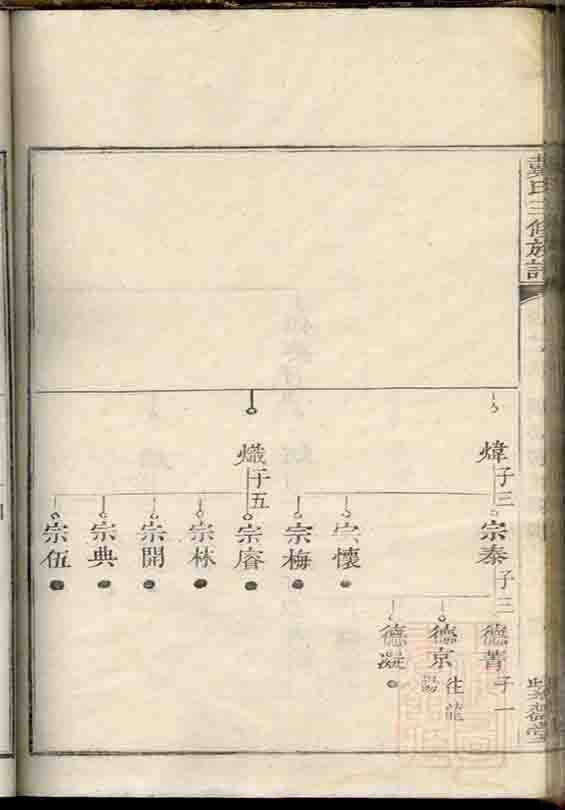 戴氏三修族譜
煒 子三
熾 子五
宗泰 子三
宗懷
宗梅
宗睿
宗林
宗開
宗典
宗伍
德菁 子一
德京 往龍
德凝